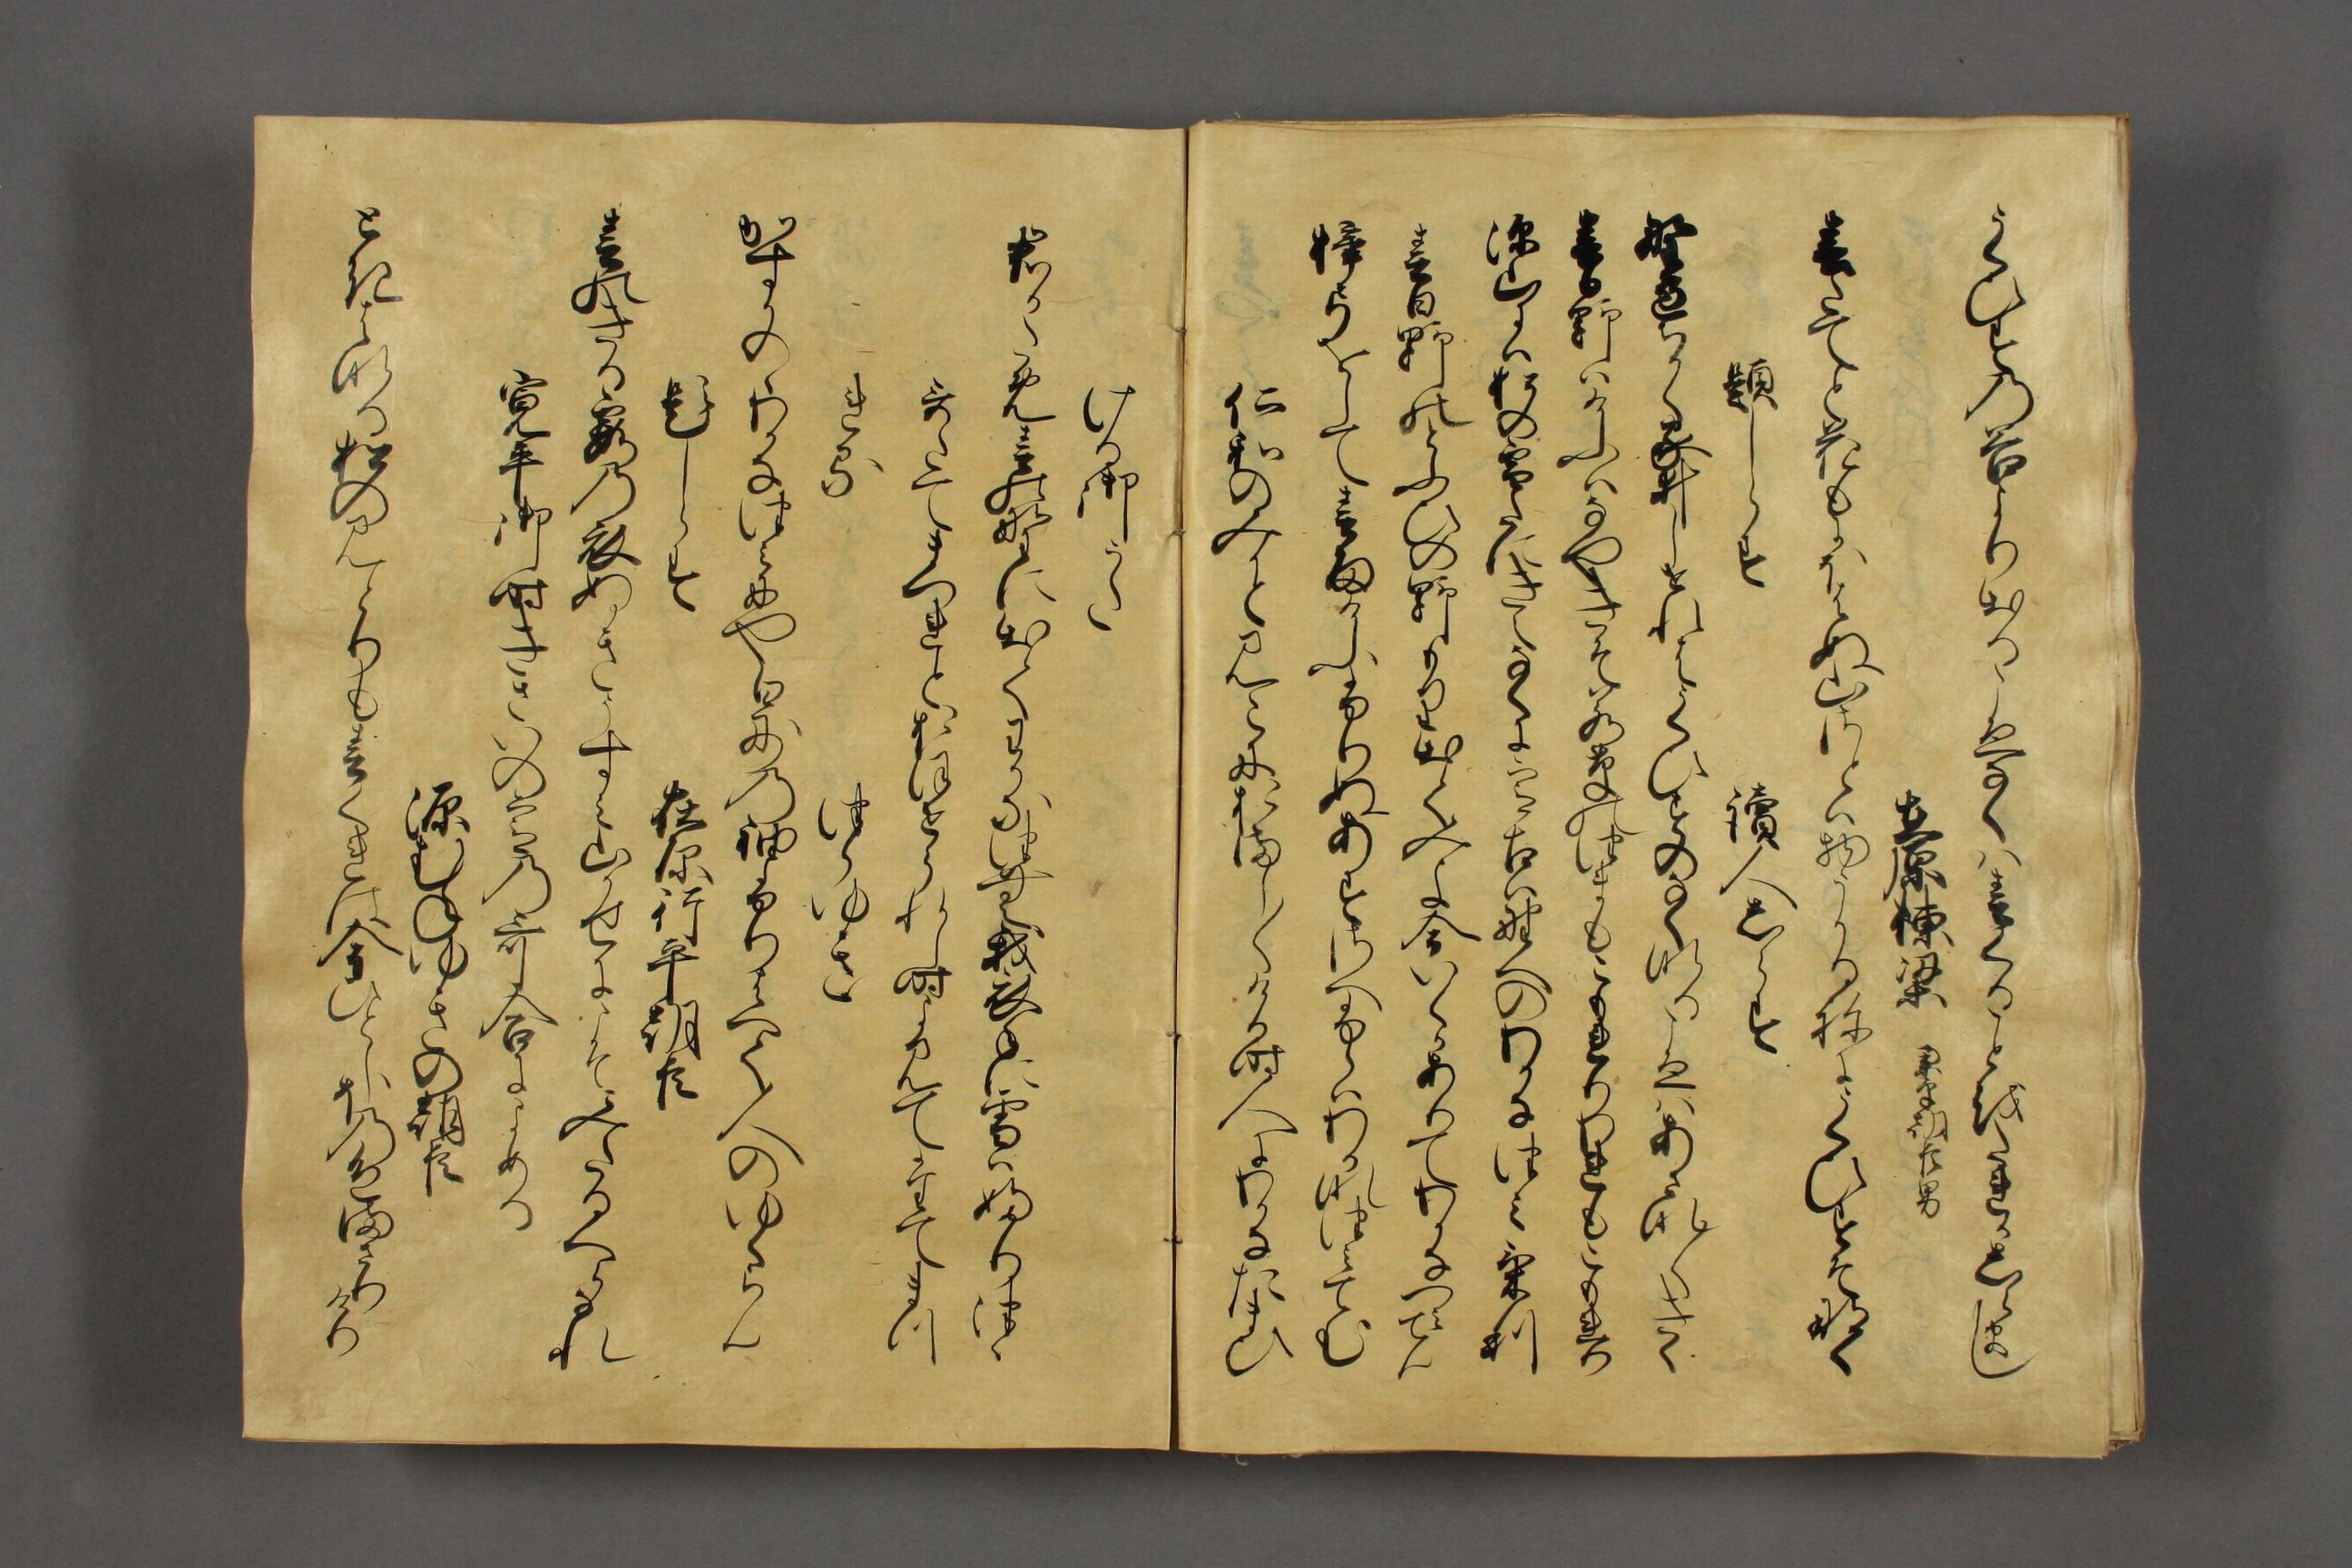 うくひすの谷よりいつるこゑなくは春くることをたれかしらまし
在原棟梁 業平朝臣男
春たてと花もにほはぬ山さとは物うかるねにうくひすそ鳴く
題しらす 讀人しらす
野邊ちかく家ゐしせれはうくひすのなくなるこゑはあさなあさなきく
春日野はけふはなやきそ若草のつまもこもれりわれもこもれり
深山には松の雪たにきえなくに宮古は野へのわかなつみけり
春日野のとふひの野守出てみよ今いくかありてわかなつみてん
梓弓をして春雨けふふりぬあすさへふらはわかなつみてむ
仁和のみかとみこにおましましける時人にわかなたまひ
ける御うた
君かため春の野に出てわかなつむ我衣手に雪はふりつゝ
哥たてまつれとおほせられし時よみてたてまつ
れる つらゆき
かすかのゝわかなつみにや白妙の袖ふりはへて人のゆくらん
題しらす 在原行平朝臣
春のきる霞の衣ぬきをうすみ山かせにこそみたるへらなれ
寛平御時きさいの宮の哥合によめる
源むねゆきの朝臣
ときはなる松のみとりも春くれは今ひとしほの色まさりけり